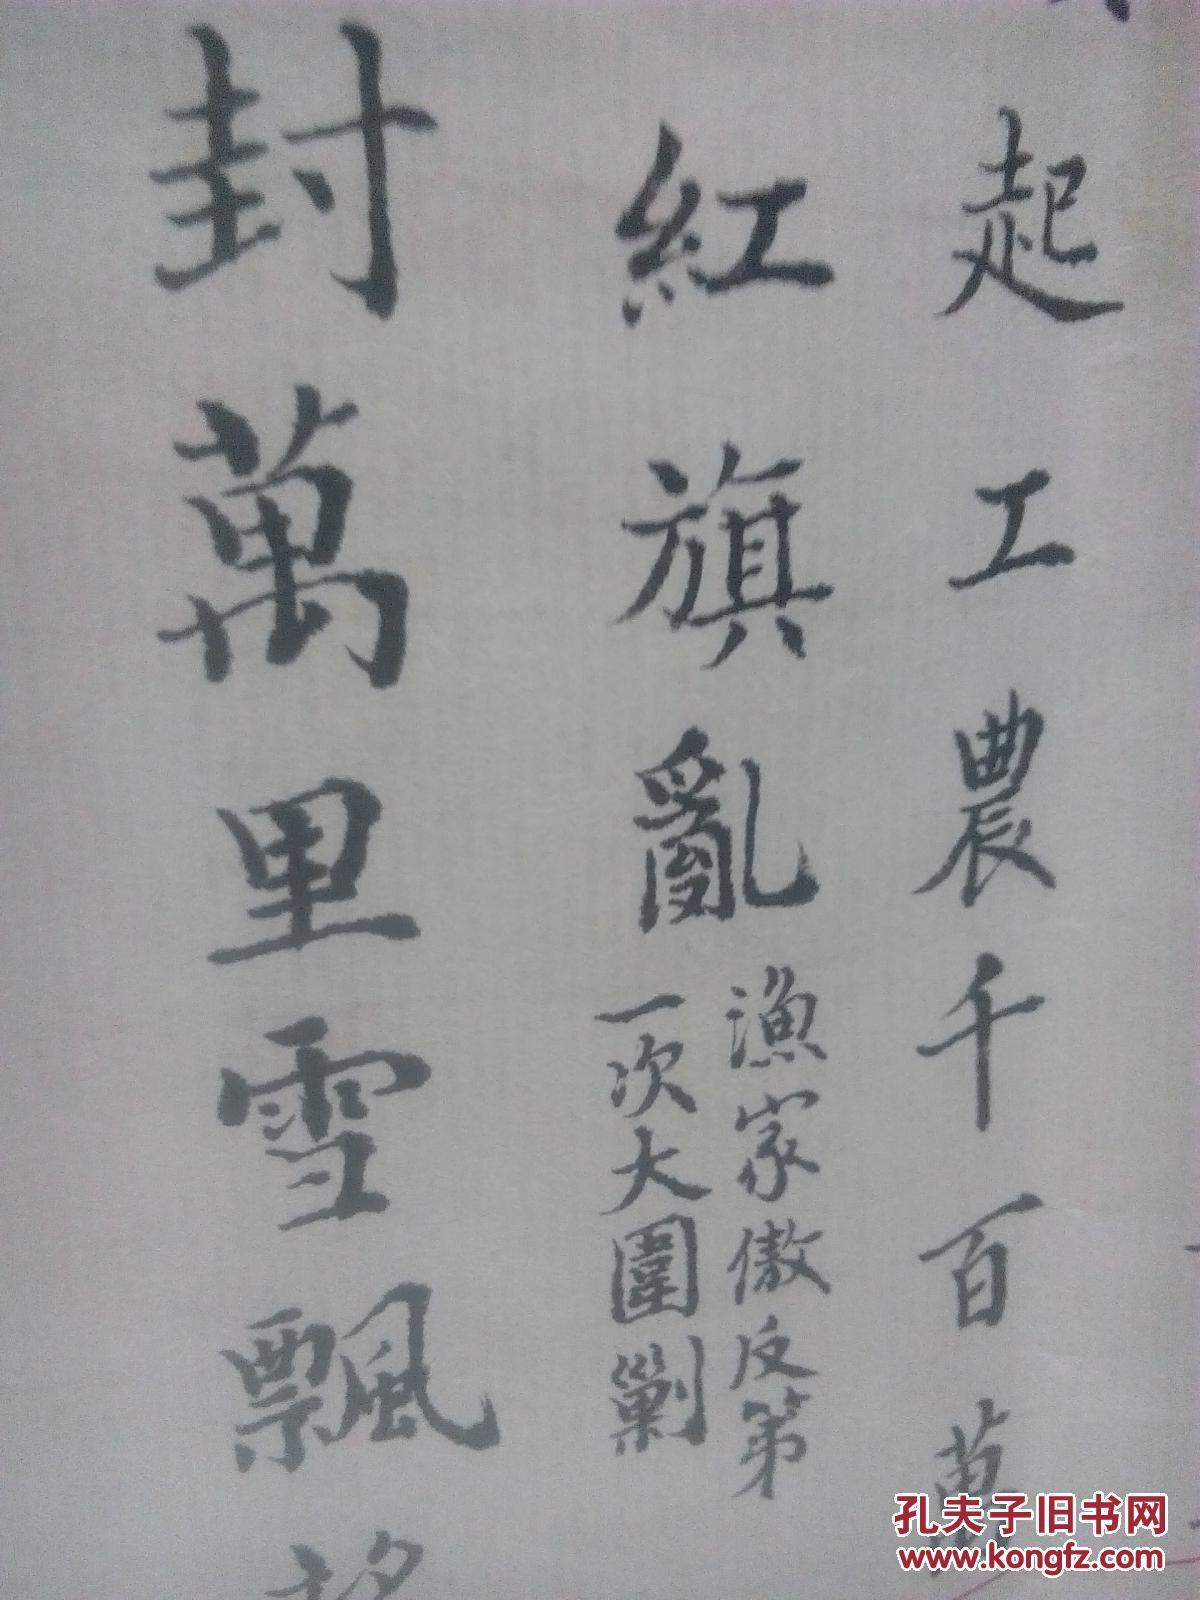 起工農千百萬
紅旗亂
漁家傲反第
一次大圍剿
封萬里雪飄
孔夫子旧书网
www.kongfz.com